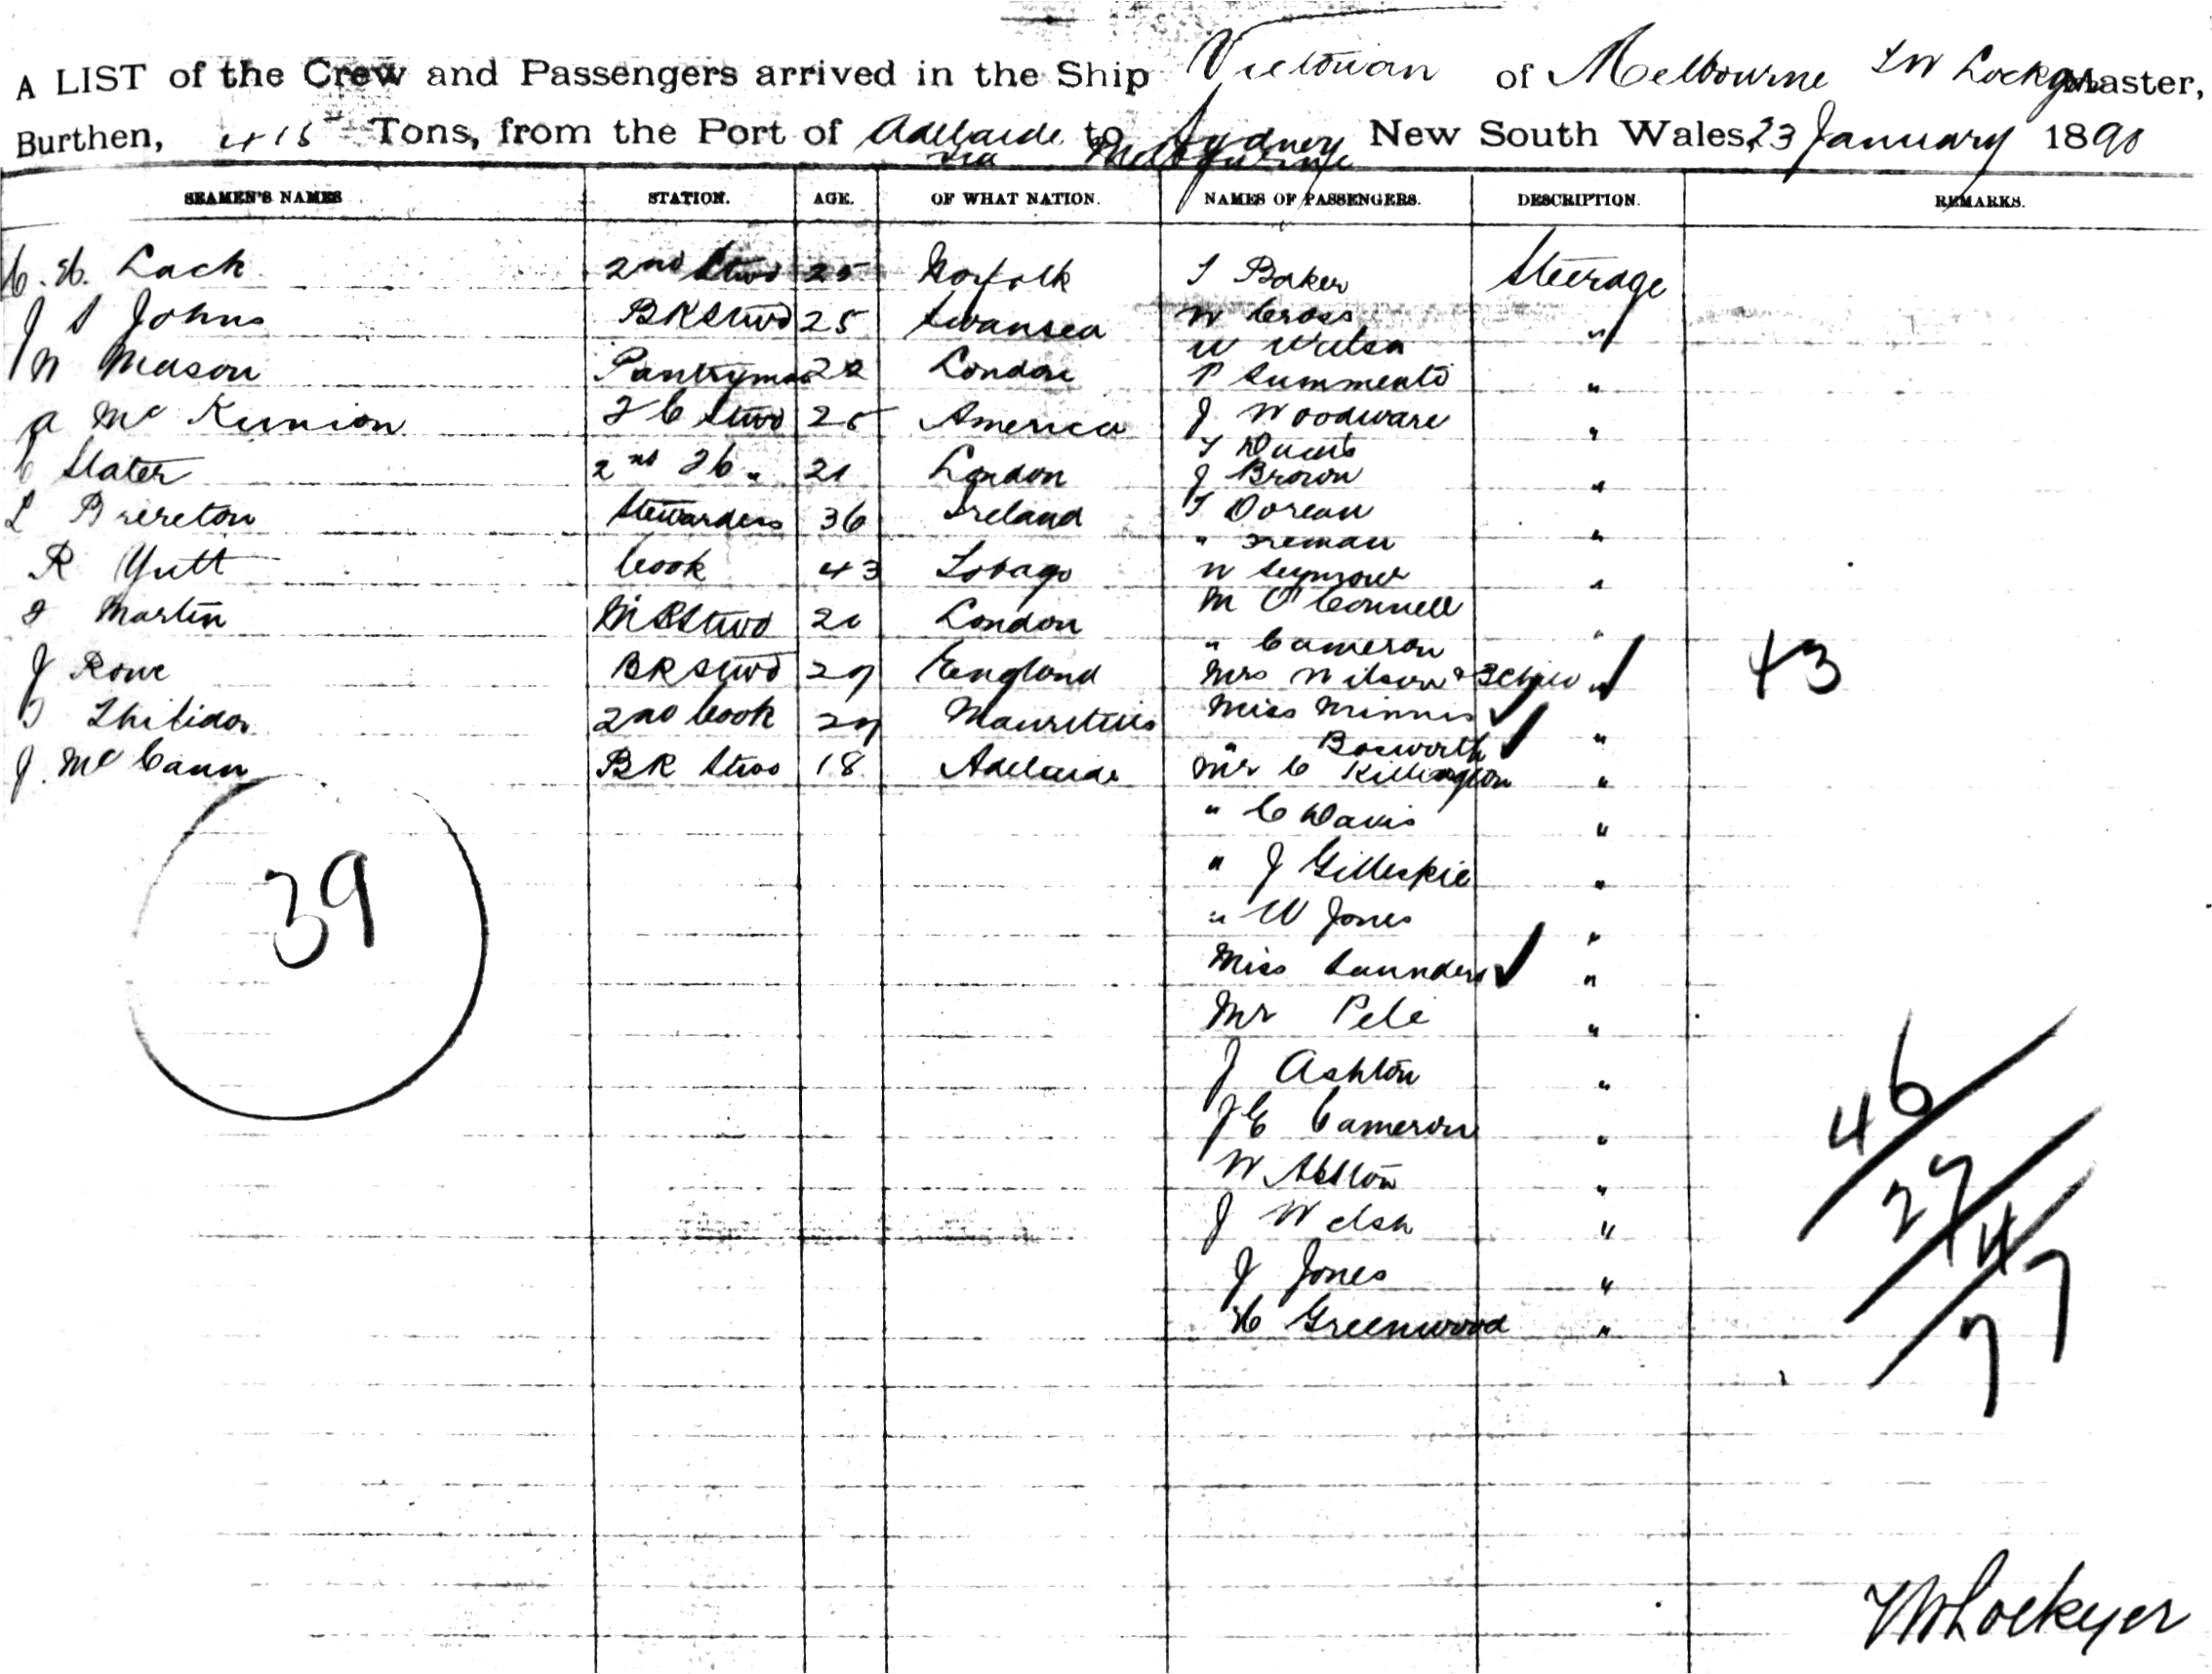 A LIST of the Crew and Passengers arrived in the Ship Victorian of Melbourne Master,
Burthen, Tons, from the Port of Adelaide to Sydney New South Wales, 23 January 1890
via Melbourne
SEAMEN'S NAMES STATION. AGE. OF WHAT NATION. NAMES OF PASSENGERS. DESCRIPTION. REMARKS.
C. H. Lack 2nd Stwd 25 Norfolk T Baker Steerage
J S Johns BK Stwd 25 Swansea W Cross "
W Wilson
W Mason Pantryman 22 London P "
A Mc 2 C Stwd 25 America J Woodware "
T
C Slater 2nd 2C " 21 London J Brown "
L Brereton Stewardess 36 Ireland T Dorean "
"
R Yutt Cook 43 Tobago W Seymour "
Martin Stwd 20 London M O'Connell "
" Cameron
J Rowe BR Stwd 29 England Mrs Wilson & "
43
2nd Cook 29 Mauritius Miss Minnis "
" Bosworth
J. Mc Cann BR Stwd 18 Adelaide Mr C Killington "
" C Davis "
39
" J Gilleskie "
" W Jones "
Miss Saunders "
Mr Pele "
J Ashton "
J E Cameron "
46
W "
J Welsh "
27
4
J Jones "
H Greenwood "
77
Lockyer